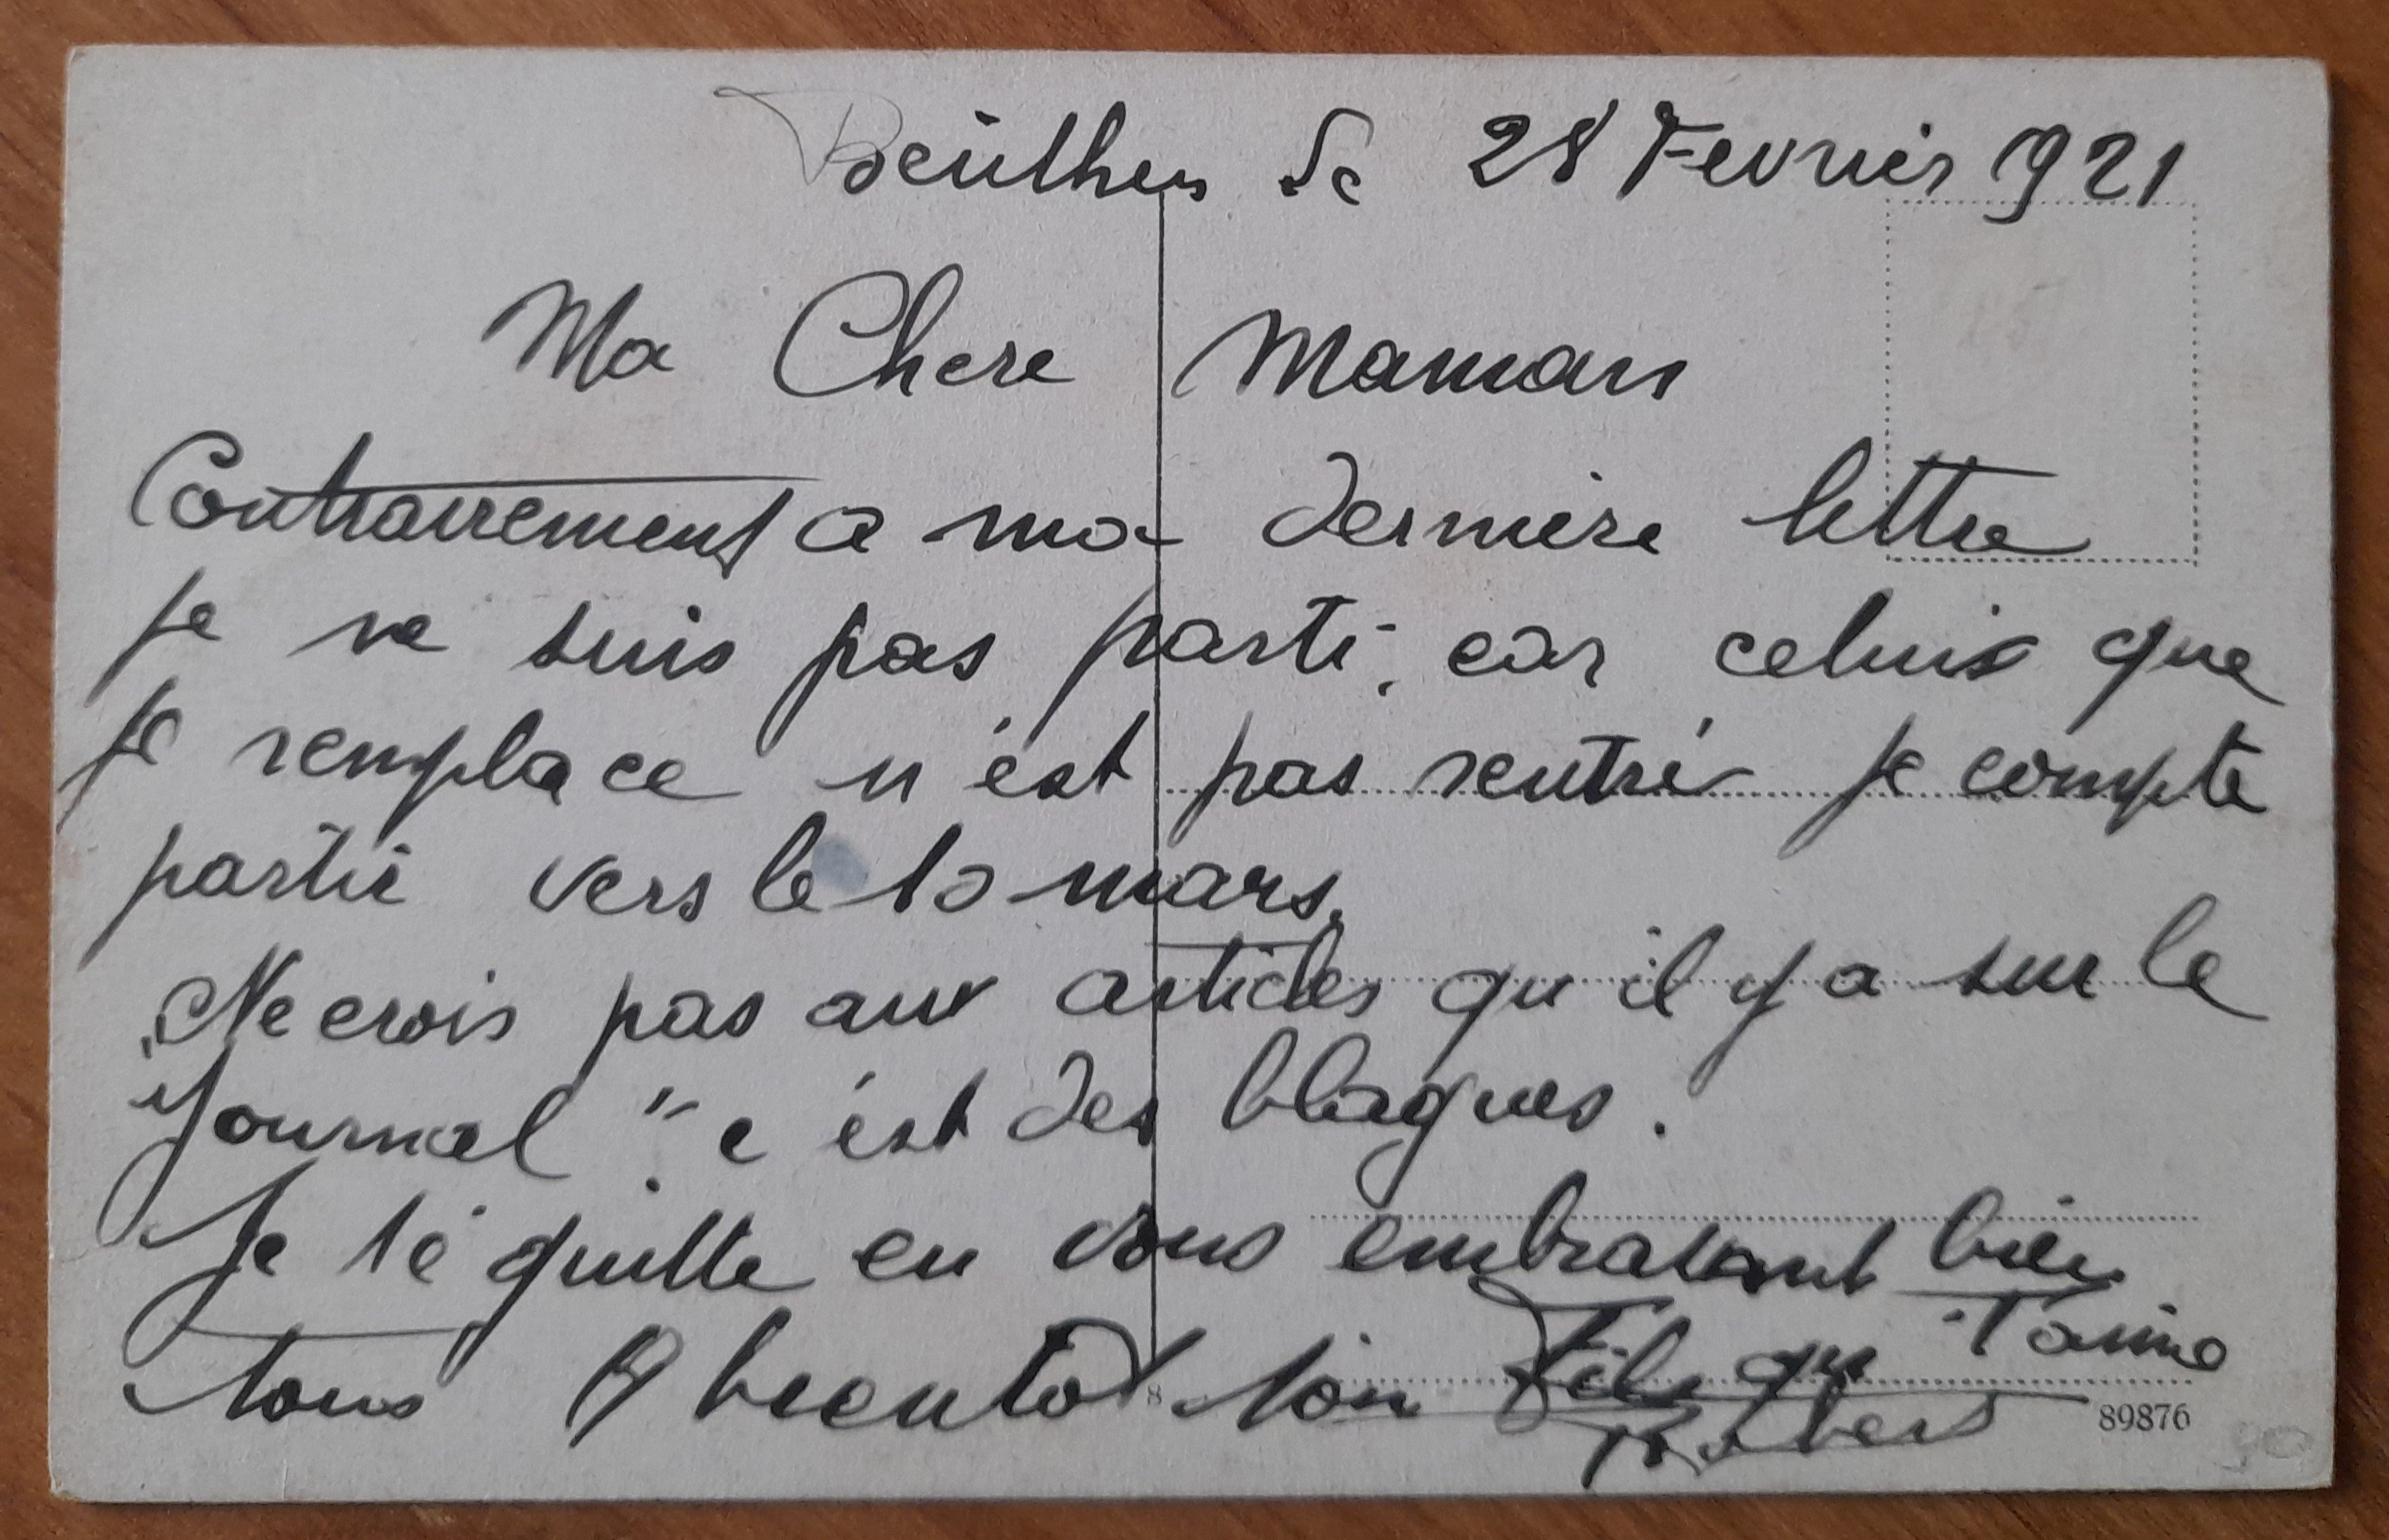 Beuthen le 28 Fevrier 1921
Ma Chere Maman
Contrairement a ma dernière lettre
je ne suis pas parti, car celuis que
je remplace n'est pas rentré je compte
partir vers le 10 mars.
Ne crois pas aux articles qu'il y a sur le
"Journal" c'est des blagues.
Je te quitte en vous embrasant bien
tous A bientot ton Fils qui t'aime
Robert
8
89876